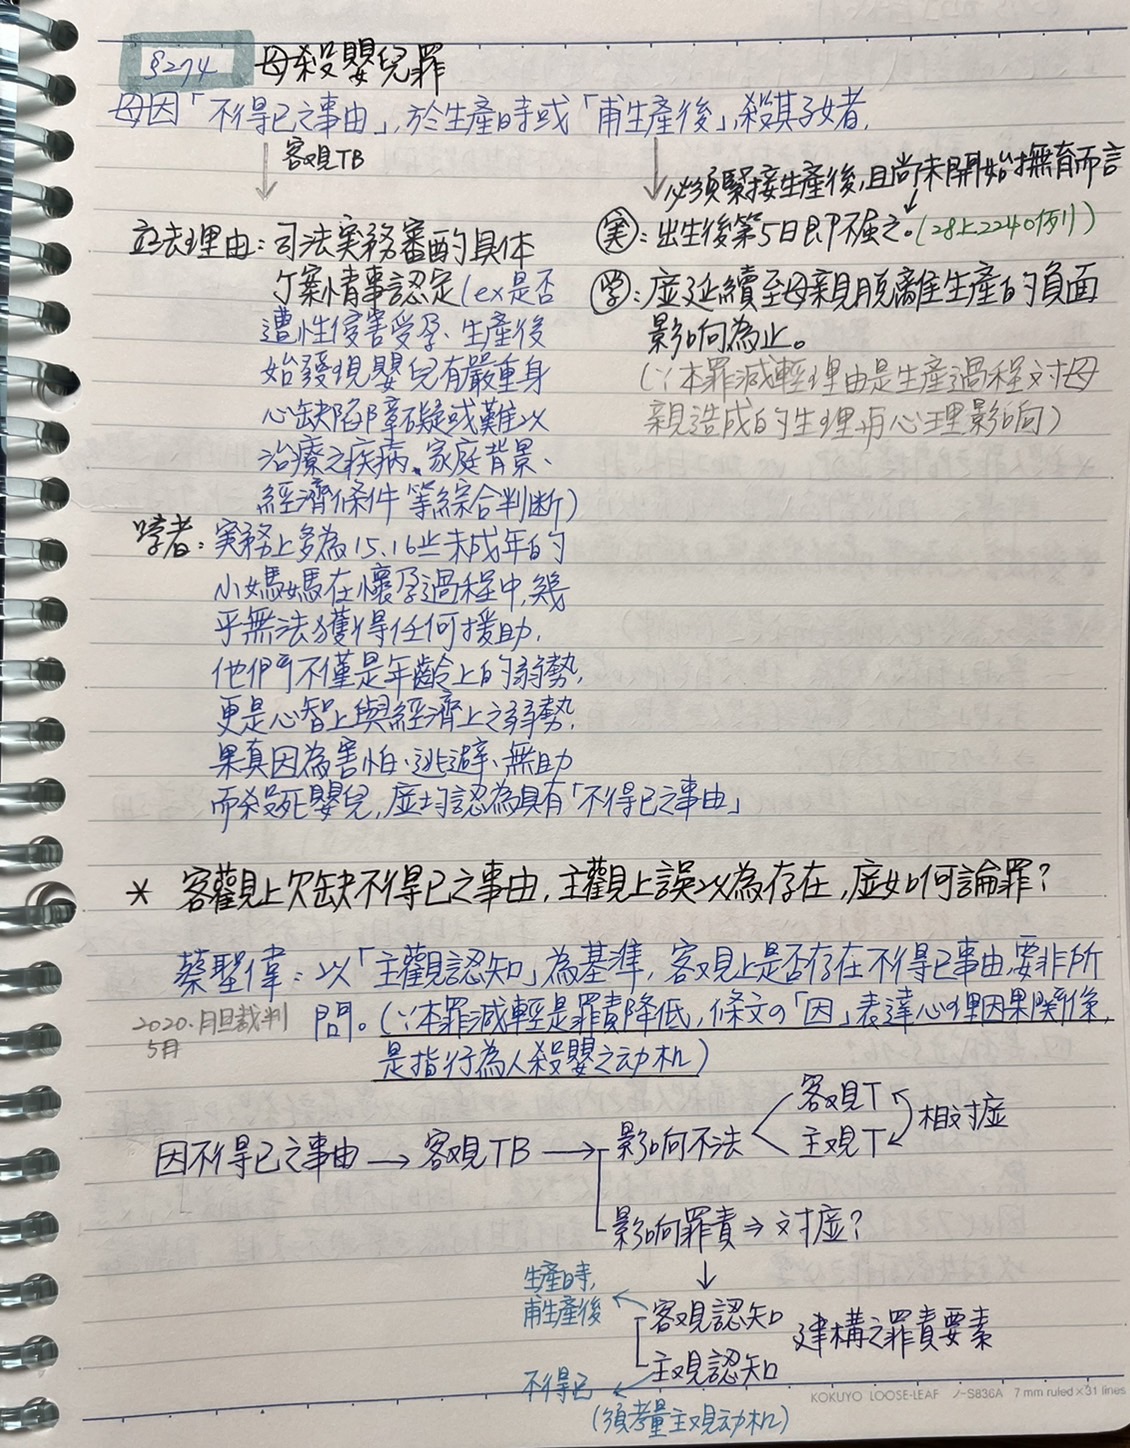 §274 母殺嬰兒罪
母因「不得已之事由」,於生產時或「甫生產後」,殺其子女者,
客观TB
必須緊接生產後,且尚未開始撫育而言
实:出生後第5日即不屬之。(28上2240例)
学:应延續至母親脫離生產的負面
影响為止。
(∵本罪減輕理由是生產過程对母
親造成的生理、心理影响)
立法理由:司法実務審酌具体
个案情事認定(ex是否
遭性侵害受孕、生產後
始發現嬰兒有嚴重身
心缺陷障礙或難以
治療之疾病、家庭背景、
經濟條件等綜合判断)
学者:実務上多為15.16岁未成年的
小媽媽在懷孕過程中,幾
乎無法獲得任何援助,
他們不僅是年齡上的弱勢,
更是心智上與經濟上之弱勢,
果真因為害怕、逃避、無助
而殺死嬰兒,应均認為具有「不得已之事由」
* 客觀上欠缺不得已之事由,主觀上誤以為存在,应如何論罪?
蔡聖偉:以「主觀認知」為基準,客观上是否存在不得已事由,要非所
問。(∵本罪減輕是罪責降低,條文の「因」表達心理因果関係,
是指行為人殺嬰之动机)
2020.月旦裁判
5月
因不得已之事由→客观TB→影响不法
客观T
主观T
相对应
影响罪責⇒对應?
生產時,
甫生產後
客观認知
主观認知
建構之罪責要素
不得已
(須考量主观动机)
KOKUYO LOOSE-LEAF ノ-S836A 7 mm ruled×31 lines